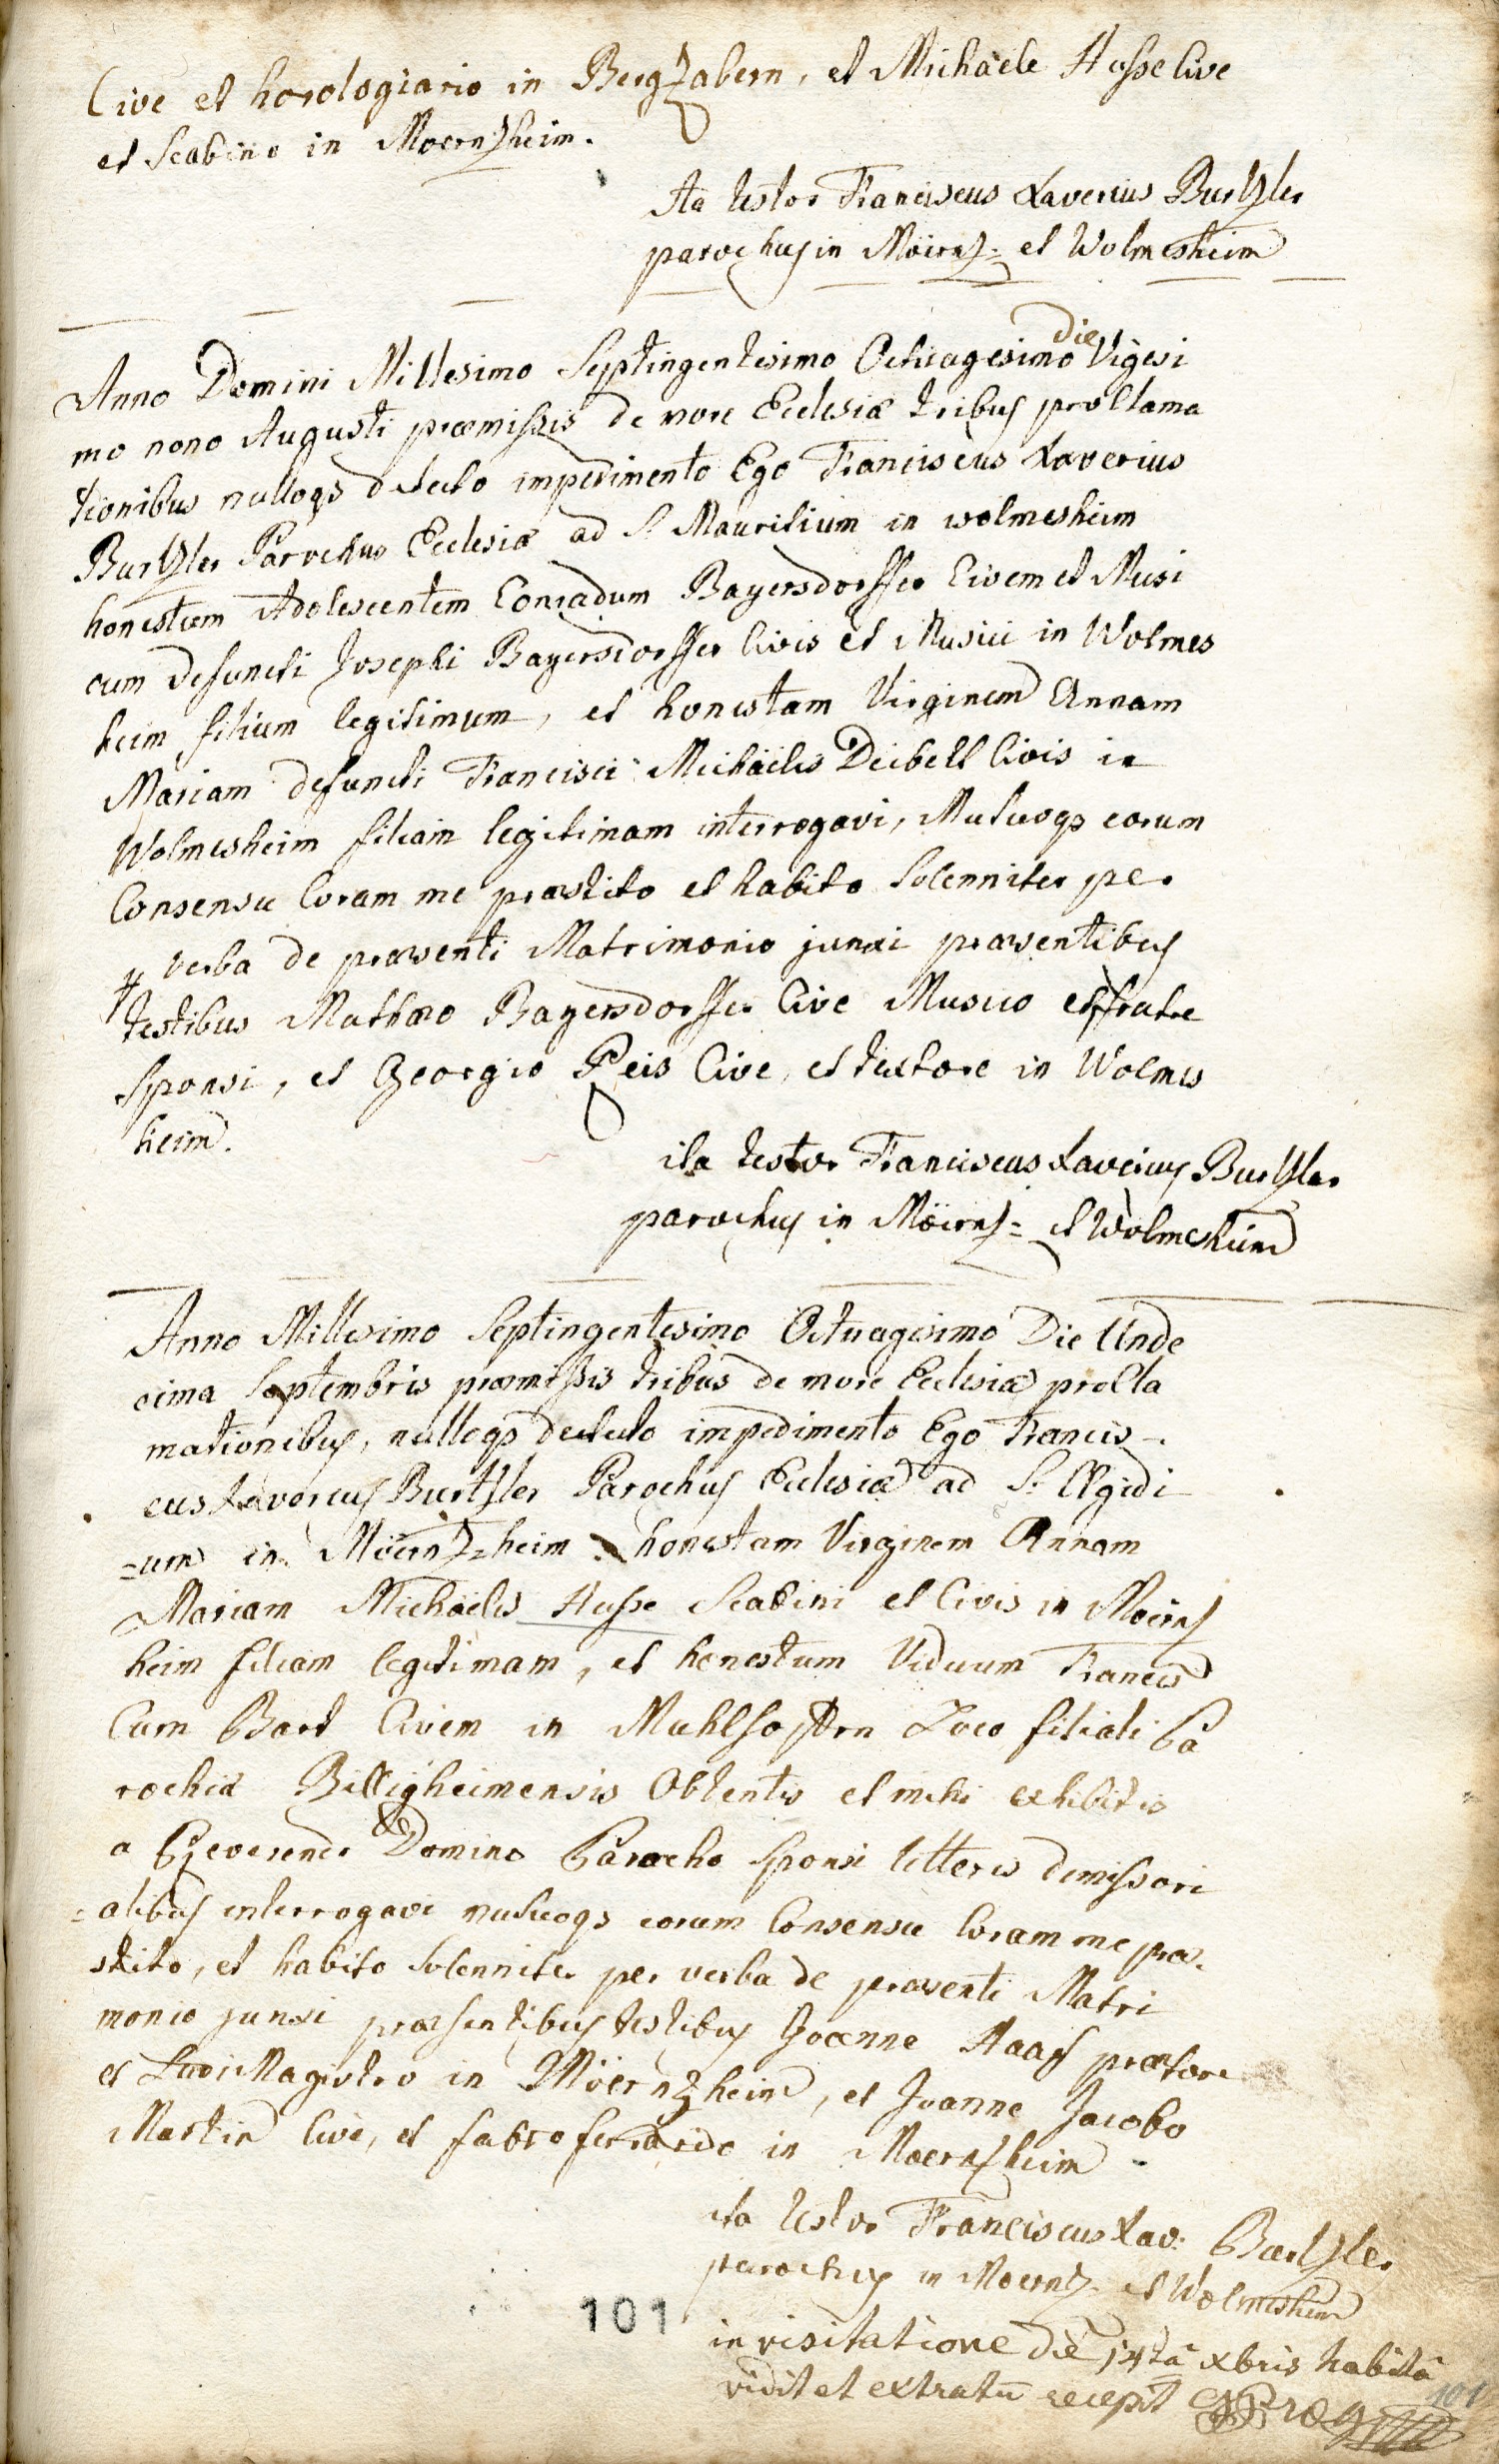 Cive et horologiario in Bergzabern, et Michaele Husse Cive
et Scabino in Moernzheim.
Ita testor Franciscus Xaverius Burtzler
parochus in Möernz= et Wolmesheim
Anno Domini Millesimo Septingentesimo Octuagesimo die Vigesi
mo nono Augusti præmissis de more Ecclesiæ tribus proclama
tionibus nulloqs detecto impedimento Ego Franciscus Xaverius
Burtzler Parochus Ecclesiæ ad S. Mauritium in wolmesheim
honestum Adolescentem Conradum Bayersdorffer Civem et Musi
cum defuncti Josephi Bayersdorffer Civis et Musici in Wolmes
heim filium legitimum, et honestam Virginem Annam
Mariam defuncti Francisci Michäelis Deibell Civis in
Wolmesheim filiam legitimam interrogavi, Mutuoqs eorum
Consensu Coram me præstito et habito Solenniter per
verba de præsenti Matrimonio junxi præsentibus
testibus Mathæo Bayersdorffer Cive Musico et fratre
Sponsi, et Georgio Reis Cive, et textore in Wolmes
heim.
ita testor Franciscus Xaverius Burtzler
parochus in Möernz= et Wolmesheim
Anno Millesimo Septingentesimo Octuagesimo Die Unde
cima Septembris præmissis tribus de more Ecclesiæ procla
mationibus, nulloqs detecto impedimento Ego Francis-
cus Xaverius Burtzler Parochus Ecclesiæ ad S. Ægidi
=um in Möernz=heim honestam Virginem Annam
Mariam Michäelis Husse Scabini et Civis in Moernz
heim filiam legitimam, et honestum Viduum Francis
Cum Bart Civem in Muhlhoffen Loco filiali Pa
rochiæ Billigheimensis Obtentis et mihi exhibitis
a Reverendo Domino Parocho Sponsi litteris dimissori
=alibus interrogavi mutuoqs eorum Consensu Coram me præ
stito, et habito Solenniter per verba de præsenti Matri
monio junxi præsentibus testibus Joanne Haas prætore
et Ludi Magistro in Möernzheim, et Joanne Jacobo
Martin Cive, et fabro ferrario in Moernzheim -
ita testor Franciscus Xav: Burtzler
parochus in Moernz= et Wolmesheim
101
in visitatione die 14tâ Xbris habitâ
vidit et extractū recepit
101